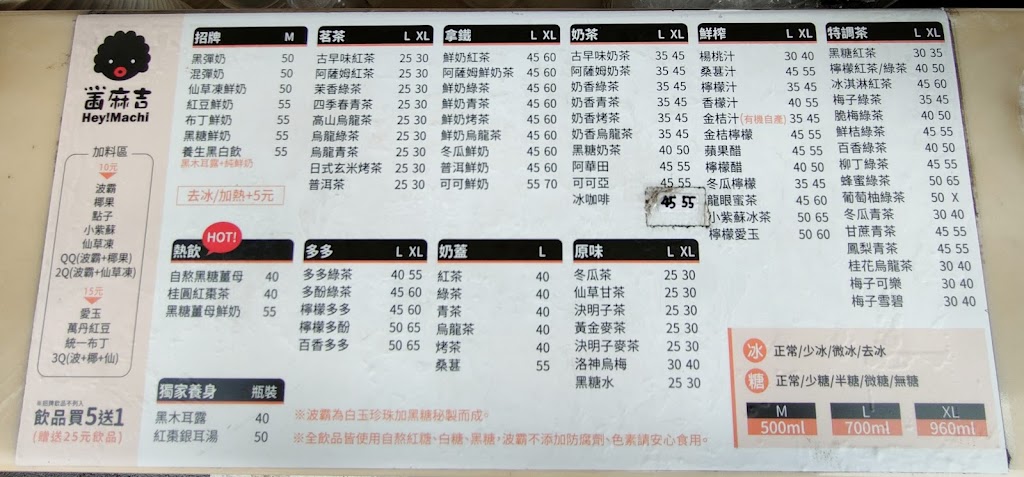 黑麻吉
Hey!Machi
加料區
10元
波霸
椰果
點子
小紫蘇
仙草凍
QQ(波霸+椰果)
2Q(波霸+仙草凍)
15元
愛玉
萬丹紅豆
統一布丁
3Q(波+椰+仙)
※招牌飲品不列入
飲品買5送1
(贈送25元飲品)
招牌 M
黑彈奶 50
混彈奶 50
仙草凍鮮奶 50
紅豆鮮奶 55
布丁鮮奶 55
黑糖鮮奶 55
養生黑白飲 55
黑木耳露+純鮮奶
去冰/加熱+5元
茗茶 L XL
古早味紅茶 25 30
阿薩姆紅茶 25 30
茉香綠茶 25 30
四季春青茶 25 30
高山烏龍茶 25 30
烏龍綠茶 25 30
烏龍青茶 25 30
日式玄米烤茶 25 30
普洱茶 25 30
拿鐵 L XL
鮮奶紅茶 45 60
阿薩姆鮮奶茶 45 60
鮮奶綠茶 45 60
鮮奶青茶 45 60
鮮奶烤茶 45 60
鮮奶烏龍茶 45 60
冬瓜鮮奶 45 60
普洱鮮奶 45 60
可可鮮奶 55 70
奶茶 L XL
古早味奶茶 35 45
阿薩姆奶茶 35 45
奶香綠茶 35 45
奶香青茶 35 45
奶香烤茶 35 45
奶香烏龍茶 35 45
黑糖奶茶 40 50
阿華田 45 55
可可亞 45 55
冰咖啡 45 55
鮮榨 L XL
楊桃汁 30 40
桑葚汁 45 55
檸檬汁 35 45
香檬汁 40 55
金桔汁(有機自產) 35 45
金桔檸檬 45 55
蘋果醋 45 55
檸檬醋 40 50
冬瓜檸檬 35 45
龍眼蜜茶 45 60
小紫蘇冰茶 50 65
檸檬愛玉 50 60
特調茶 L XL
黑糖紅茶 30 35
檸檬紅茶/綠茶 40 50
冰淇淋紅茶 45 60
梅子綠茶 35 45
脆梅綠茶 40 50
鮮桔綠茶 45 55
百香綠茶 40 50
柳丁綠茶 45 55
蜂蜜綠茶 50 65
葡萄柚綠茶 50 X
冬瓜青茶 30 40
甘蔗青茶 45 55
鳳梨青茶 45 55
桂花烏龍茶 30 40
梅子可樂 30 40
梅子雪碧 30 40
熱飲 HOT!
自熬黑糖薑母 40
桂圓紅棗茶 40
黑糖薑母鮮奶 55
多多 L XL
多多綠茶 40 55
多酚綠茶 45 60
檸檬多多 45 60
檸檬多酚 50 65
百香多多 50 65
奶蓋 L
紅茶 40
綠茶 40
青茶 40
烏龍茶 40
烤茶 40
桑葚 55
原味 L XL
冬瓜茶 25 30
仙草甘茶 25 30
決明子茶 25 30
黃金麥茶 25 30
決明子麥茶 25 30
洛神烏梅 30 40
黑糖水 25 30
獨家養身 瓶裝
黑木耳露 40
紅棗銀耳湯 50
※波霸為白玉珍珠加黑糖秘製而成。
※全飲品皆使用自熬紅糖、白糖、黑糖，波霸不添加防腐劑、色素請安心食用。
冰 正常/少冰/微冰/去冰
糖 正常/少糖/半糖/微糖/無糖
M L XL
500ml 700ml 960ml